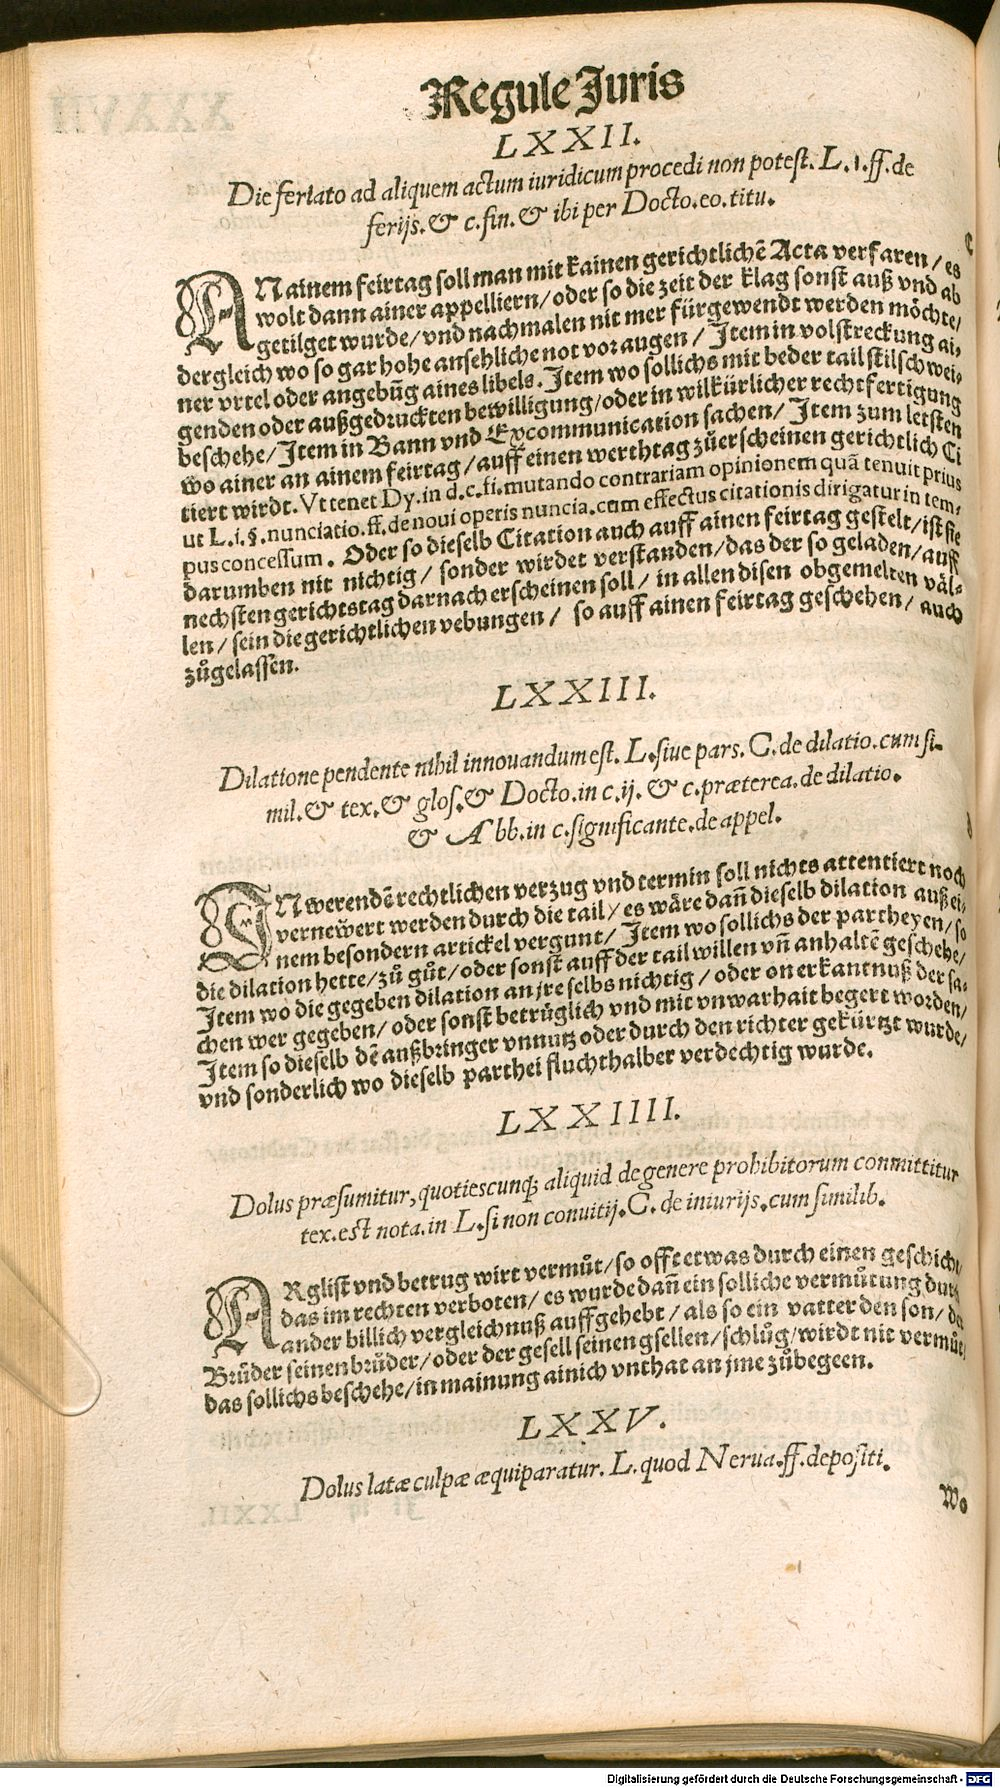 Regule Juris
LXXII.
Die feriato ad aliquem actum iuridicum procedi non potest. L.1.ff.de
ferijs.& c.fin.& ibi per Docto.eo.titu.
AN ainem feirtag soll man mit kainen gerichtlichē Acta verfaren/es
wolt dann ainer appelliern/oder so die zeit der klag sonst auß vnd ab
getilget wurde/vnd nachmalen nit mer fürgewendt werden möchte/
dergleich wo so gar hohe ansehliche not vor augen/Jtem in volstreckung ai-
ner vrtel oder angebūg aines libels. Jtem wo sollichs mit beder tail stilschwei-
genden oder außgedruckten bewilligung/oder in wilkürlicher rechtfertigung
beschehe/Jtem in Bann vnd Excommunication sachen/Jtem zum letsten
wo ainer an ainem feirtag/auff einen werthtag zůerscheinen gerichtlich Ci
tiert wirdt. Vt tenet Dy.in d.c.fi.mutando contrariam opinionem quā tenuit prius
ut L.i.§.nunciatio.ff.de noui operis nuncia.cum effectus citationis dirigatur in tem-
pus concessum. Oder so dieselb Citation auch auff ainen feirtag gestelt/ist sie
darumben nit nichtig/sonder wirdet verstanden/das der so geladen/auff
nechsten gerichtstag darnach erscheinen soll/in allen disen obgemelten väl-
len/sein die gerichtlichen vebungen/so auff ainen feirtag geschehen/auch
zůgelassen.
LXXIII.
Dilatione pendente nihil innouandum est. L.siue pars. C.de dilatio.cum si-
mil.& tex.& glos.& Docto.in c.ij.& c.præterea.de dilatio.
& Abb.in c.significante.de appel.
IN werendē rechtlichen verzug vnd termin soll nichts attentiert noch
vernewert werden durch die tail/es wäre dañ dieselb dilation auß ei-
nem besondern artickel vergunt/Jtem wo sollichs der partheyen/so
die dilation hette/zů gůt/oder sonst auff der tail willen vñ anhaltē geschehe/
Jtem wo die gegeben dilation an jre selbs nichtig/oder on erkantnuß der sa-
chen wer gegeben/oder sonst betrüglich vnd mit vnwarhait begert worden/
Jtem so dieselb dē außbringer vnnutz oder durch den richter gekürtzt wurde/
vnd sonderlich wo dieselb parthei fluchthalber verdechtig wurde.
LXXIIII.
Dolus præsumitur, quotiescunq; aliquid de genere prohibitorum committitur
tex.est nota.in L.si non conuitij.C.de iniurijs.cum similib.
ARglist vnd betrug wirt vermůt/so offt etwas durch einen geschicht/
das im rechten verboten/es wurde dañ ein solliche vermůtung durch
ander billich vergleichnuß auffgehebt/als so ein vatter den son/der
Brůder seinen brůder/oder der gesell seinen gsellen/schlůg/wirdt nit vermůt/
das sollichs beschehe/in mainung ainich vnthat an jme zůbegeen.
LXXV.
Dolus latæ culpæ æquiparatur. L.quod Nerua.ff.depositi.
Wo
Digitalisierung gefördert durch die Deutsche Forschungsgemeinschaft - DFG